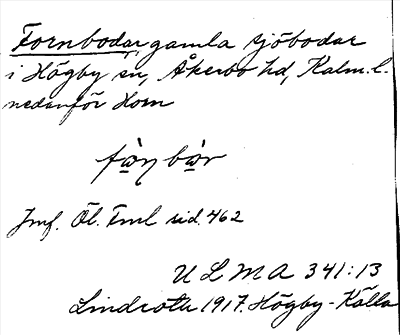 Fornbodar, gamla sjöbodar
i Högby sn, Åkerbo hd, Kalm. l.
nedanför Horn
Jmf. Öl. Fml sid. 462
ULMA 341:13
Lindroth 1917. Högby-Källa